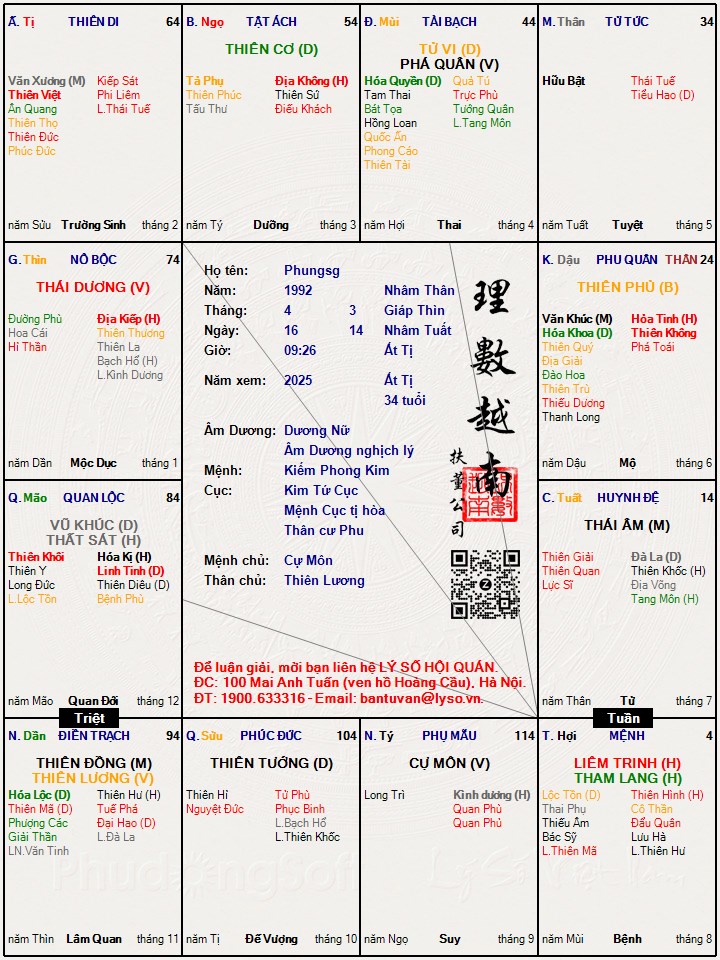 Ấ. Tị THIÊN DI 64
Văn Xương (M) Kiếp Sát
Thiên Việt Phi Liêm
Ân Quang L.Thái Tuế
Thiên Thọ
Thiên Đức
Phúc Đức
năm Sửu Trường Sinh tháng 2
B. Ngọ TẬT ÁCH 54
THIÊN CƠ (D)
Tả Phụ Địa Không (H)
Thiên Phúc Thiên Sứ
Tấu Thư Điếu Khách
năm Tý Dưỡng tháng 3
Đ. Mùi TÀI BẠCH 44
TỬ VI (D)
PHÁ QUÂN (V)
Hóa Quyền (D) Quả Tú
Tam Thai Trực Phù
Bát Tọa Tướng Quân
Hồng Loan L.Tang Môn
Quốc Ấn
Phong Cáo
Thiên Tài
năm Hợi Thai tháng 4
M. Thân TỬ TỨC 34
Hữu Bật Thái Tuế
Tiểu Hao (D)
năm Tuất Tuyệt tháng 5
G. Thìn NÔ BỘC 74
THÁI DƯƠNG (V)
Đường Phù Địa Kiếp (H)
Hoa Cái Thiên Thương
Hỉ Thần Thiên La
Bạch Hổ (H)
L.Kình Dương
năm Dần Mộc Dục tháng 1
Họ tên: Phungsg
Năm: 1992 Nhâm Thân
Tháng: 4 3 Giáp Thìn
Ngày: 16 14 Nhâm Tuất
Giờ: 09:26 Ất Tị
Năm xem: 2025 Ất Tị
34 tuổi
Âm Dương: Dương Nữ
Âm Dương nghịch lý
Mệnh: Kiếm Phong Kim
Cục: Kim Tứ Cục
Mệnh Cục tị hòa
Thân cư Phu
Mệnh chủ: Cự Môn
Thân chủ: Thiên Lương
理數越南
扶董公司
Để luận giải, mời bạn liên hệ LÝ SỐ HỘI QUÁN.
ĐC: 100 Mai Anh Tuấn (ven hồ Hoàng Cầu), Hà Nội.
ĐT: 1900.633316 - Email: bantuvan@lyso.vn.
K. Dậu PHU QUÂN THÂN 24
THIÊN PHỦ (B)
Văn Khúc (M) Hỏa Tinh (H)
Hóa Khoa (D) Thiên Không
Thiên Quý Phá Toái
Địa Giải
Đào Hoa
Thiên Trù
Thiếu Dương
Thanh Long
năm Dậu Mộ tháng 6
Q. Mão QUAN LỘC 84
VŨ KHÚC (D)
THẤT SÁT (H)
Thiên Khôi Hóa Kị (H)
Thiên Y Linh Tinh (D)
Long Đức Thiên Diêu (D)
L.Lộc Tồn Bệnh Phù
năm Mão Quan Đới tháng 12
C. Tuất HUYNH ĐỆ 14
THÁI ÂM (M)
Thiên Giải Đà La (D)
Thiên Quan Thiên Khốc (H)
Lực Sĩ Địa Võng
Tang Môn (H)
năm Thân Tử tháng 7
Triệt
Tuần
N. Dần ĐIỀN TRẠCH 94
THIÊN ĐỒNG (M)
THIÊN LƯƠNG (V)
Hóa Lộc (D) Thiên Hư (H)
Thiên Mã (D) Tuế Phá
Phượng Các Đại Hao (D)
Giải Thần L.Đà La
LN.Văn Tinh
năm Thìn Lâm Quan tháng 11
Q. Sửu PHÚC ĐỨC 104
THIÊN TƯỚNG (D)
Thiên Hỉ Tử Phù
Nguyệt Đức Phục Binh
L.Bạch Hổ
L.Thiên Khốc
năm Tị Đế Vượng tháng 10
N. Tý PHỤ MẪU 114
CỰ MÔN (V)
Long Trì Kình dương (H)
Quan Phù
Quan Phủ
năm Ngọ Suy tháng 9
T. Hợi MỆNH 4
LIÊM TRINH (H)
THAM LANG (H)
Lộc Tồn (D) Thiên Hình (H)
Thai Phụ Cô Thần
Thiếu Âm Đẩu Quân
Bác Sỹ Lưu Hà
L.Thiên Mã L.Thiên Hư
năm Mùi Bệnh tháng 8